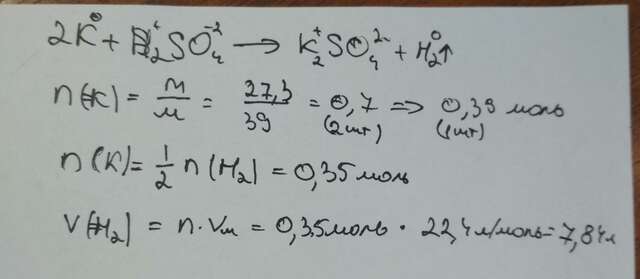 2K⁰ + H₂⁺SO₄⁻² → K₂⁺SO₄²⁻ + H₂⁰↑
n(K) = m/M = 27,3/39 = 0,7 (2шт) => 0,39 моль (1шт)
n(K) = 1/2 n(H₂) = 0,35 моль
V(H₂) = n·Vm = 0,35 моль · 22,4 л/моль = 7,84 л